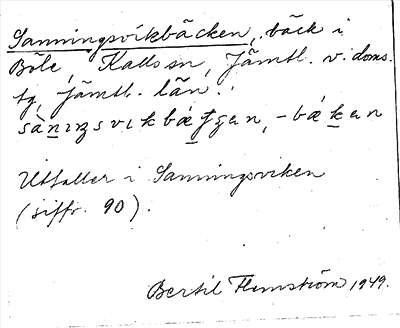 Sanningsvikbäcken, bäck i
Böle, Kallssn, Jämtl. v. doms.
tg, Jämtl. län.
Utfaller i Sanningsviken
(siffr. 90).
Bertil Flemström 1949.